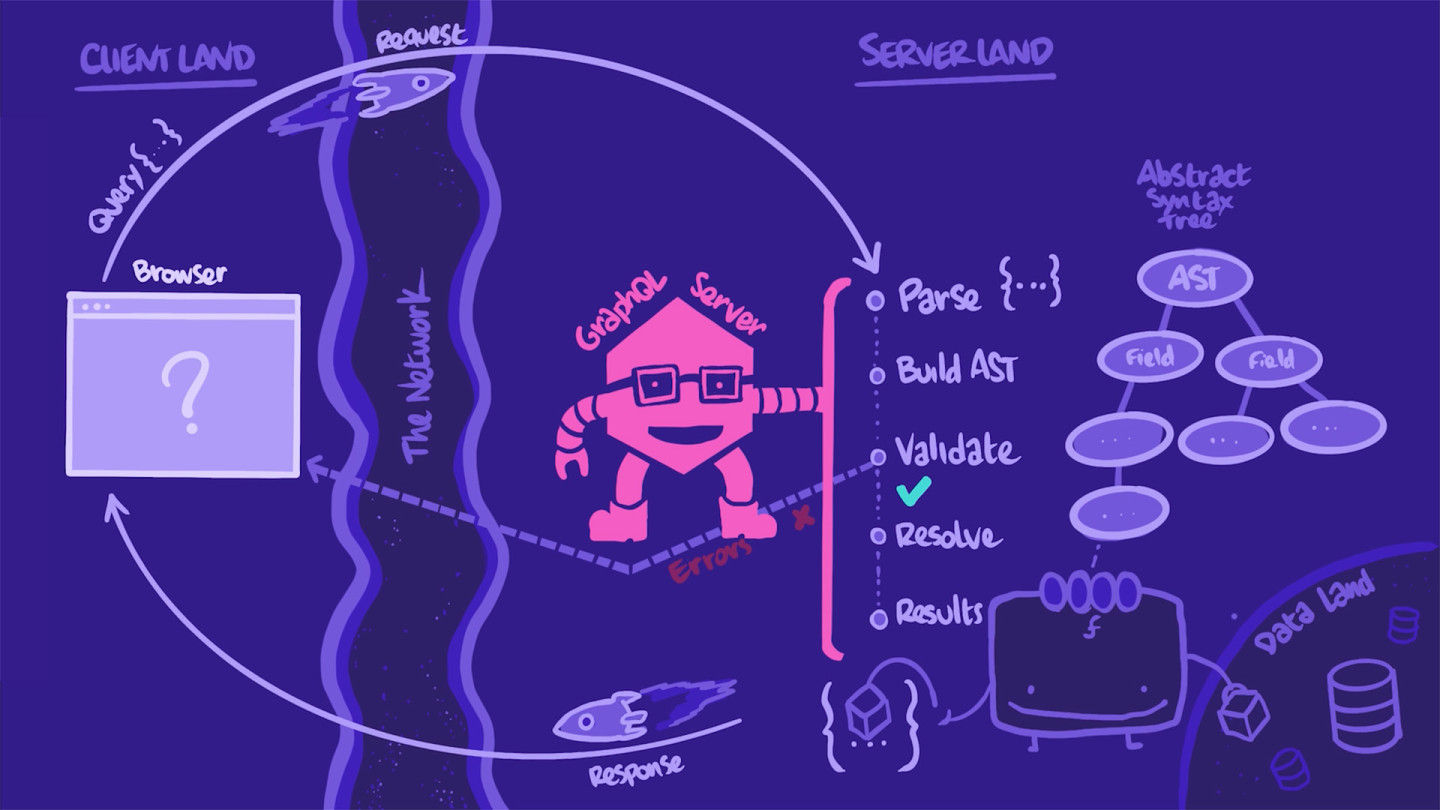 CLIENT LAND
Request
SERVER LAND
Query {...}
Browser
?
The Network
GraphQL Server
Parse {...}
Build AST
Validate
Resolve
Results
Errors x
Abstract
Syntax
Tree
AST
Field
Field
...
...
...
...
f
Data Land
{...}
Response